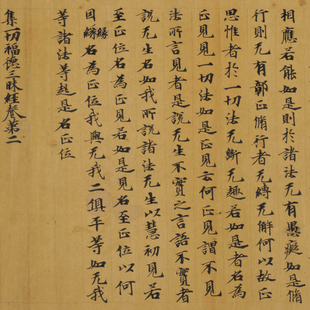 相應若能如是則於諸法无有愚癡如是脩
行則无有邪正脩行者无縛无解何以故正
思惟者於一切法无无趣若如是者名為
正見見一切法如是正見云何正見謂不見
法所言見者是說无生不實之言語不實者
說无生名如我所說諸法无生以慧初見若
至正位名為正見若如是見名至正位以何
因緣名為正位我與无我二俱平等如无我
等諸法等趣是名正位
集切福德三昧經卷第二